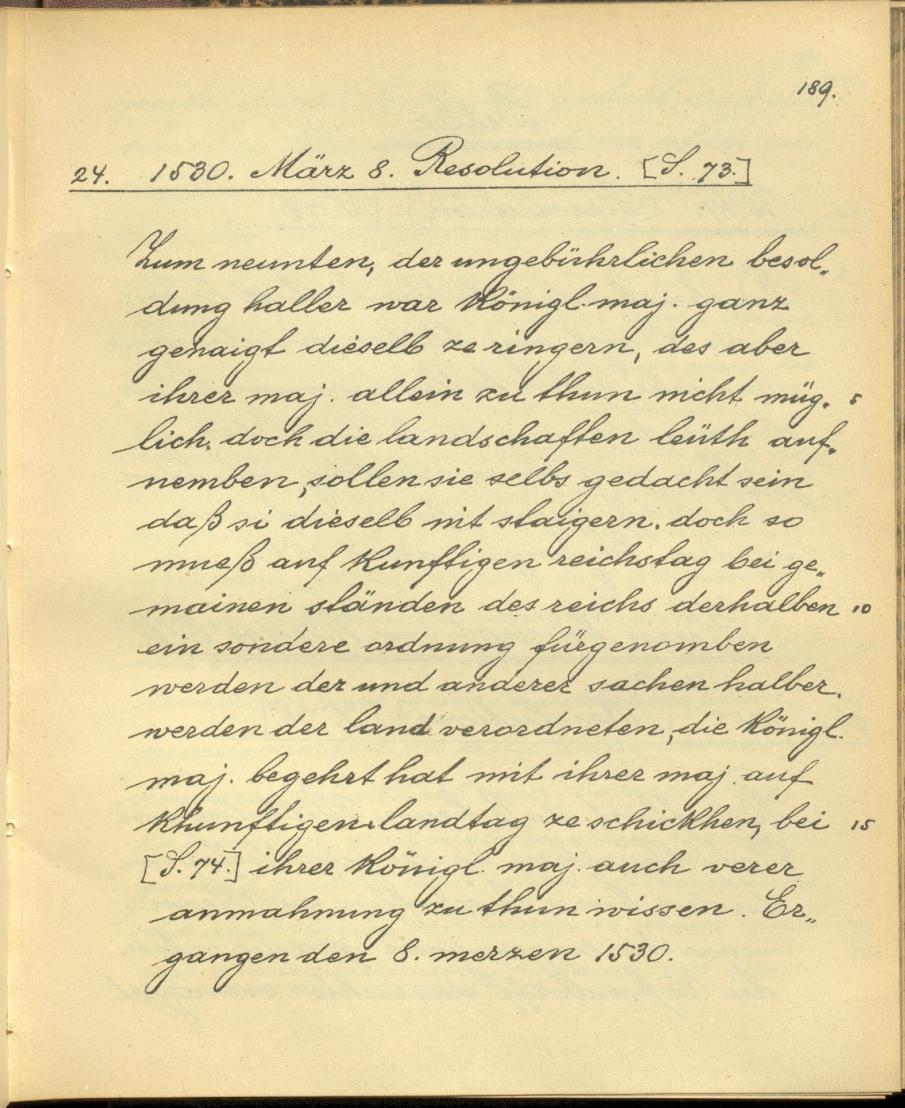 189.
24. 1530. März 8. Resolution. [S. 73.]
Zum neunten, der ungebührlichen besol„
dung haller war Königl. maj. ganz
genaigt dieselb ze ringern, des aber
ihrer maj. allein zu thun nicht müg. 5
lich. doch die landschaften leüth auf.
nemben, sollen sie selbs gedacht sein
daß si dieselb nit staigern. doch so
mueß auf Kunftigen reichstag bei ge„
mainen ständen des reichs derhalben 10
ein sondere ordnung fürgenomben
werden der und anderer sachen halber.
werden der land verordneten, die Königl.
maj. begehrt hat mit ihrer maj. auf
Khunftigen landtag ze schickhen, bei 15
[S. 74.] ihrer Königl. maj. auch verer
anmahnung zu thun wissen. Er„
gangen den 8. merzen 1530.